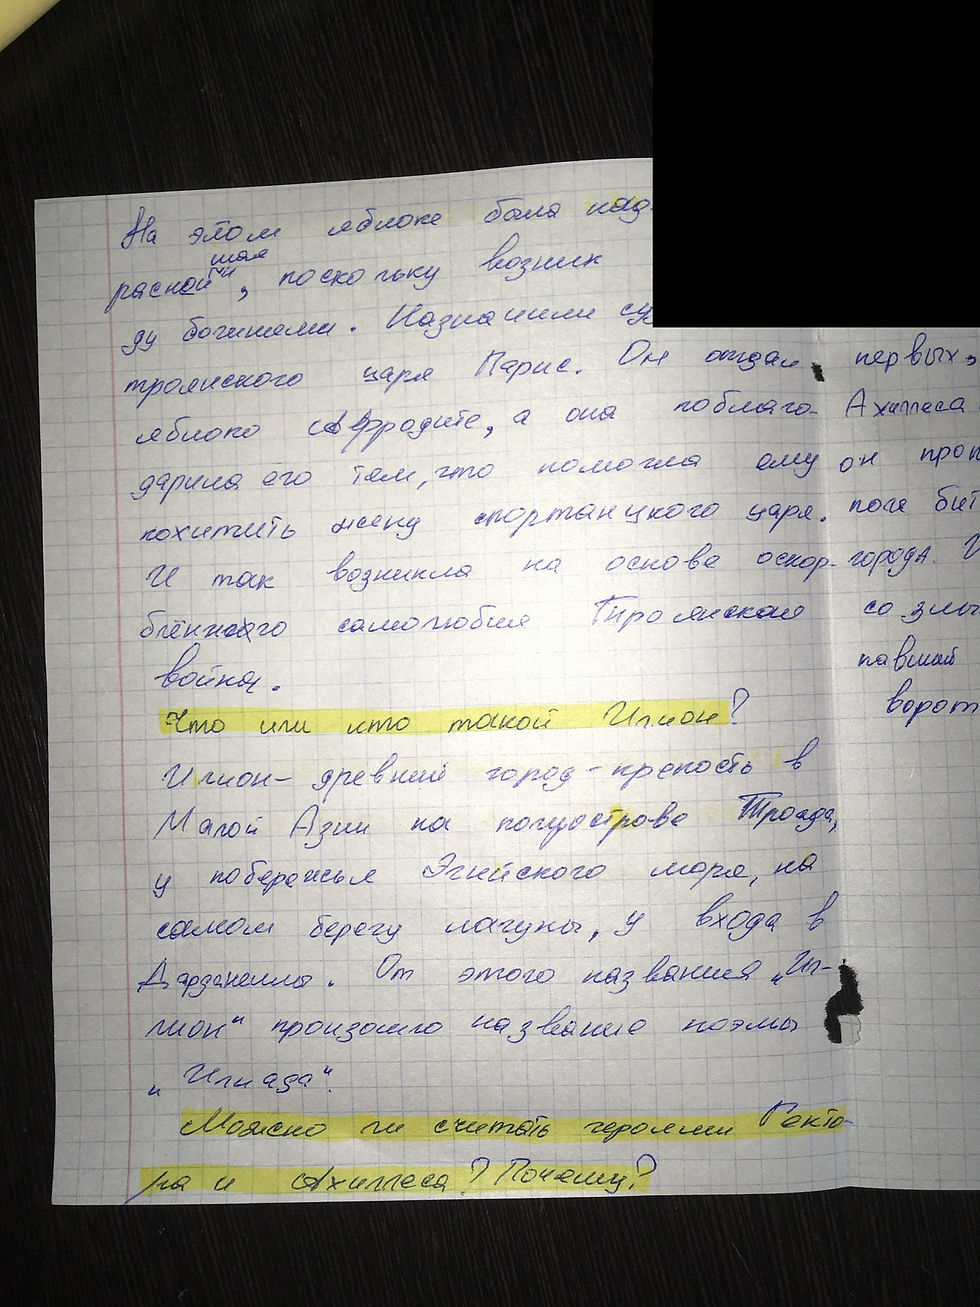 На этом яблоке была над-
шая
распой", поскольку возник
ду богинями. Назначили су
троянского царя Парис. Он отдал
яблоко Афродите, а она поблаго-
дарила его тем, что помогла ему
похитить жену спортанцкого царя.
И так возникла на основе оскор-
блённого самолюбия Троянская
война.
Что или кто такой Илион?
Илион- древний город-крепость в
Малой Азии на полуострове Троада,
у побережья Эгейского моря, на
самом берегу лагуны, у входа в
Дарданеллы. От этого названия „Ил-
лион" произошло название поэмы
„Илиада".
Можно ли считать героями Гекто-
ра и Ахиллеса? Почему?
первых,
Ахиллеса
он
города.
со злы
павший
ворот